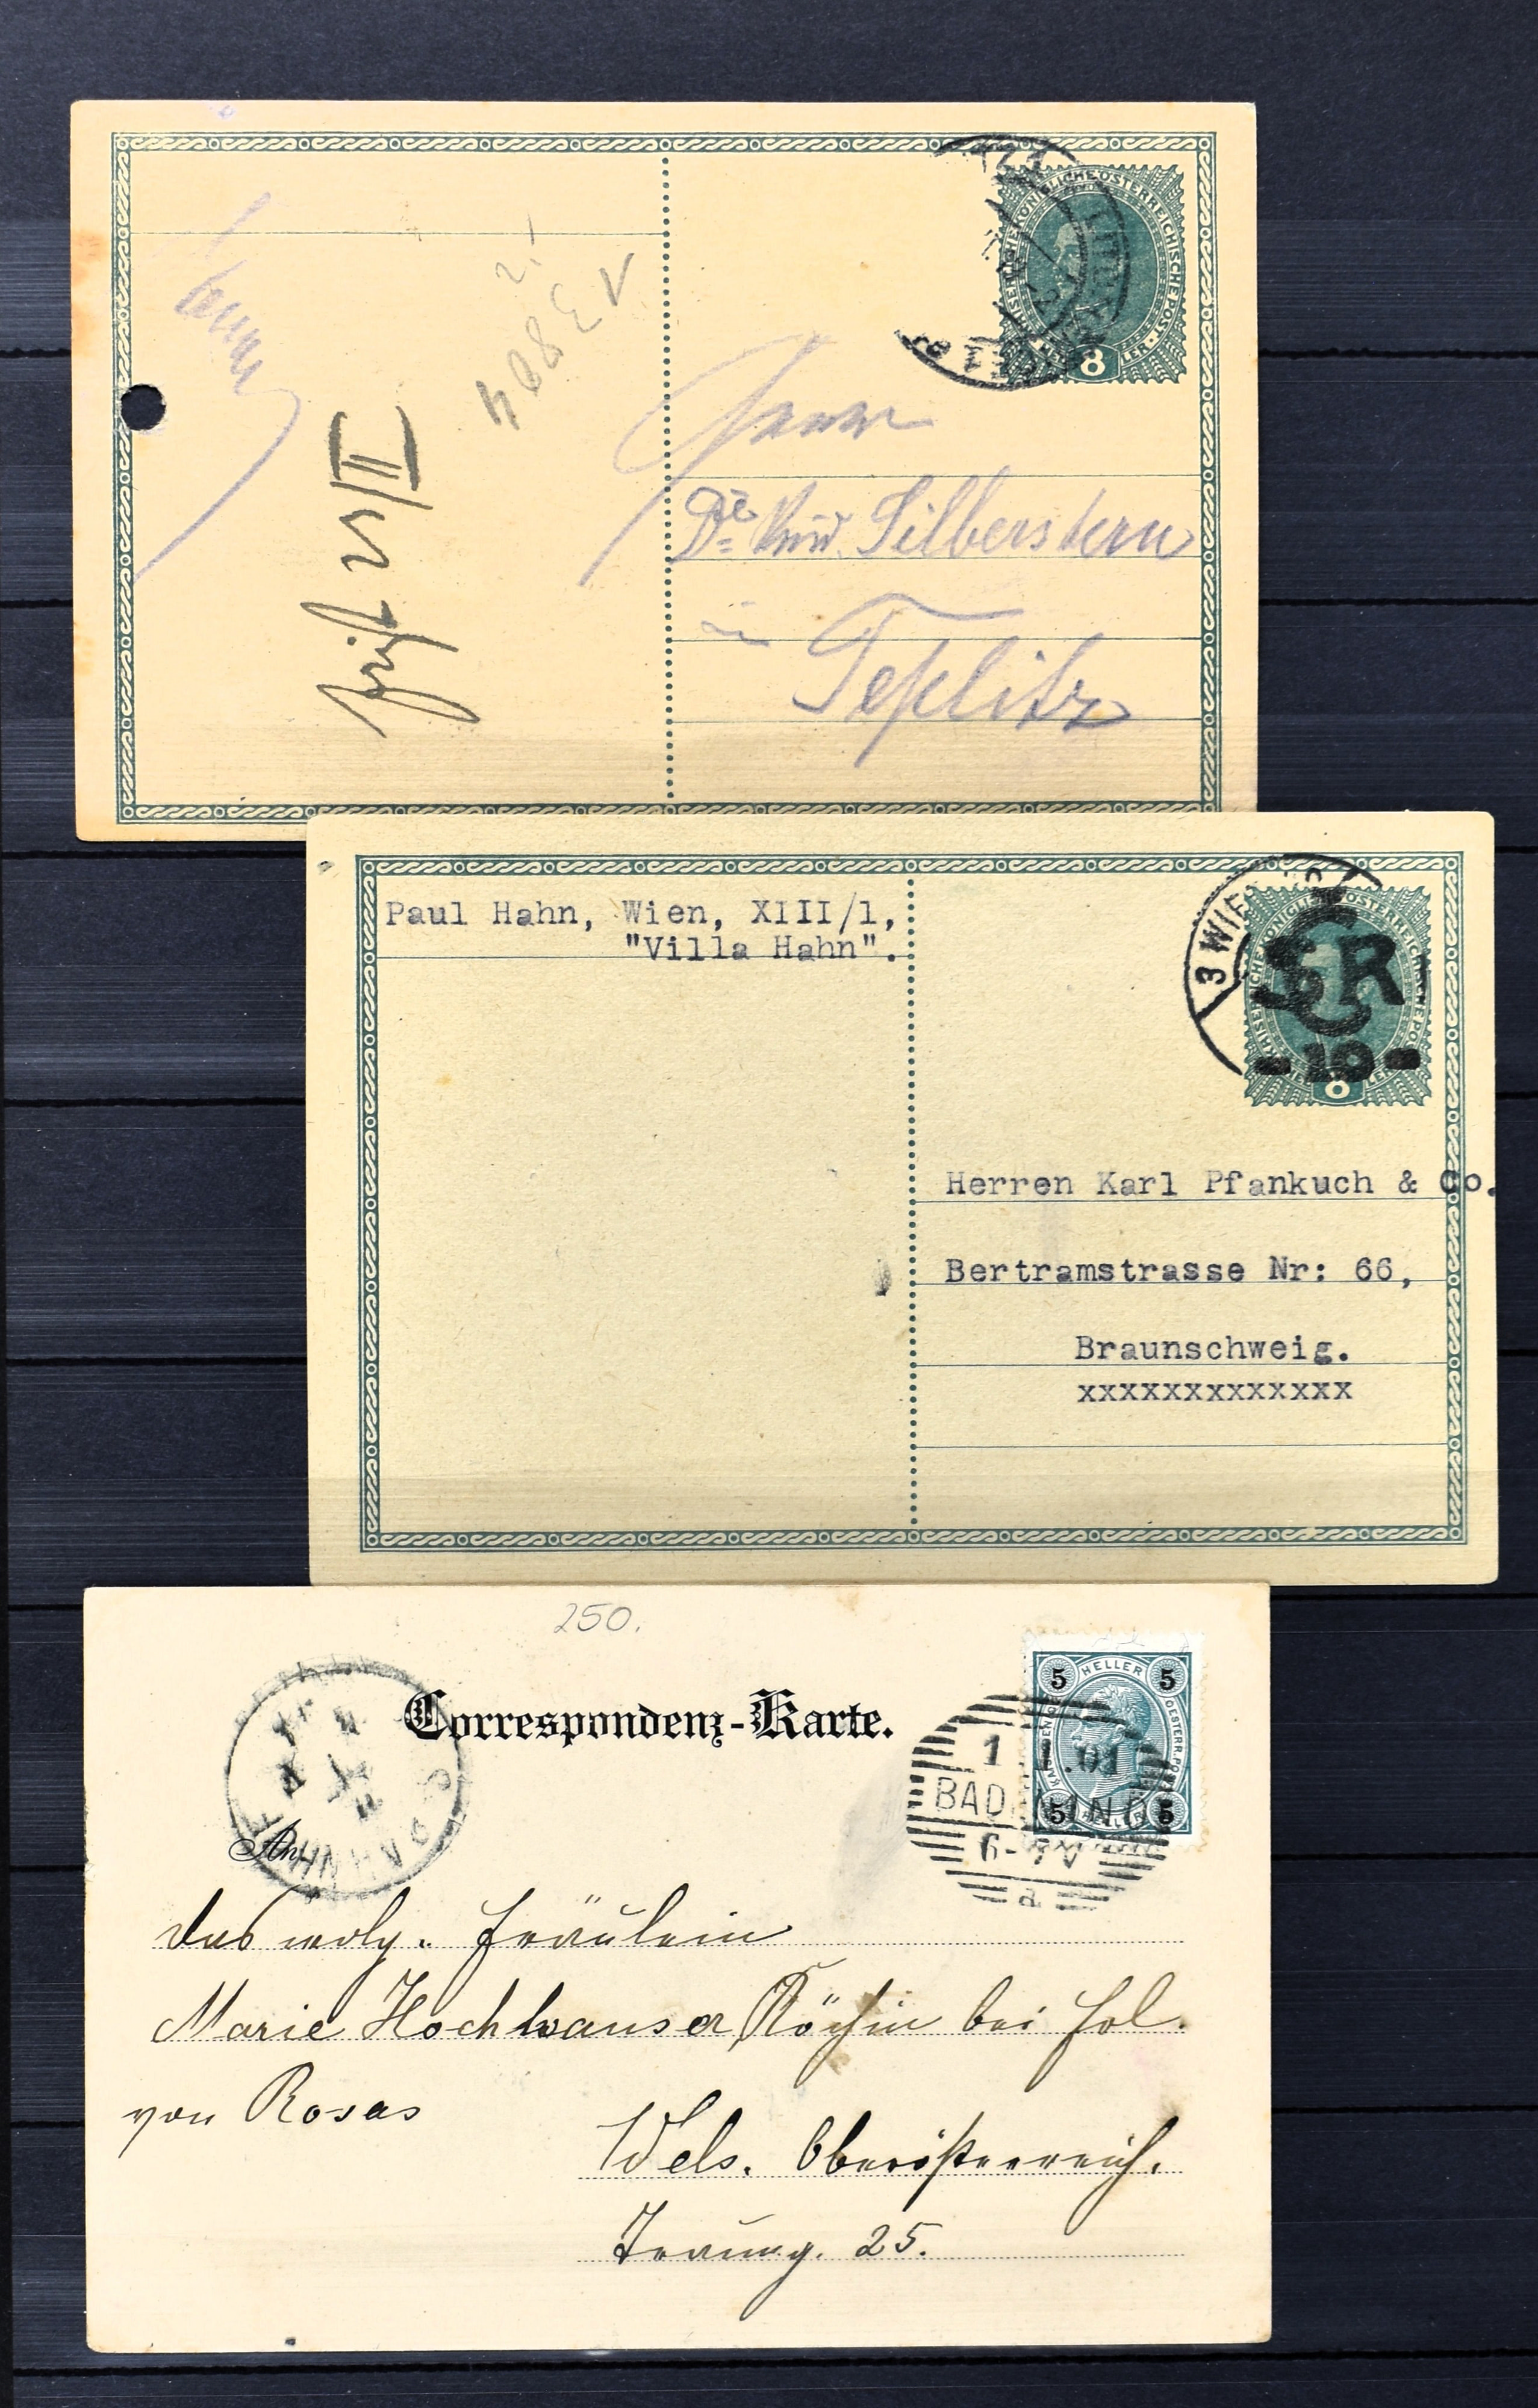 KAISERLICHE KÖNIGLICHE ÖSTERREICHISCHE POST
8
Herrn
Dr Silberstern
in
Teplitz
25/II
Paul Hahn, Wien, XIII/1,
"Villa Hahn".
3 WIEN
ČSR
-19-
8
Herren Karl Pfankuch & Co.
Bertramstrasse Nr: 66,
Braunschweig.
xxxxxxxxxxxxx
250.
Correspondenz-Karte.
5 HELLER 5
5 5
1 01
BAD
6-7V
a
BAHNHOF
An
das wolg. Fräulein
Marie Hochhauser Köchin bei Fol.
von Rosas
Wels. Oberösterreich.
Traung. 25.